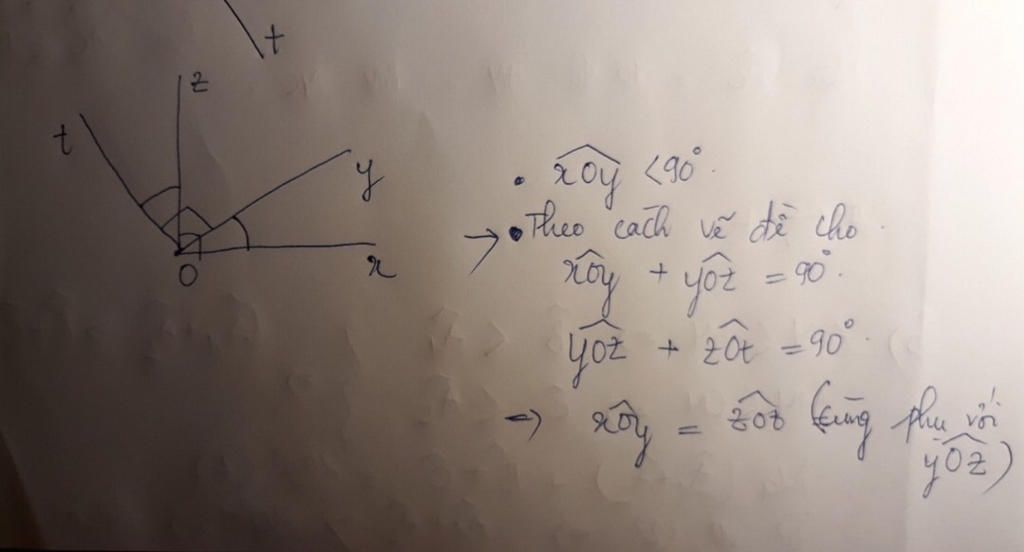 t
z
t
y
O
x
. x̂Oy < 90°.
→ • Theo cách vẽ đề cho.
x̂Oy + ŷOz = 90°.
ŷOz + ẑOt = 90°.
⇒ x̂Oy = ẑOt (cùng phụ với
ŷOz)